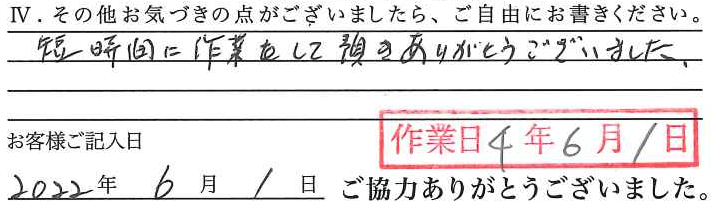 Ⅳ．その他お気づきの点がございましたら、ご自由にお書きください。
短時間に作業をして頂きありがとうございました。
お客様ご記入日
作業日4年6月1日
2022年 6月 1日 ご協力ありがとうございました。